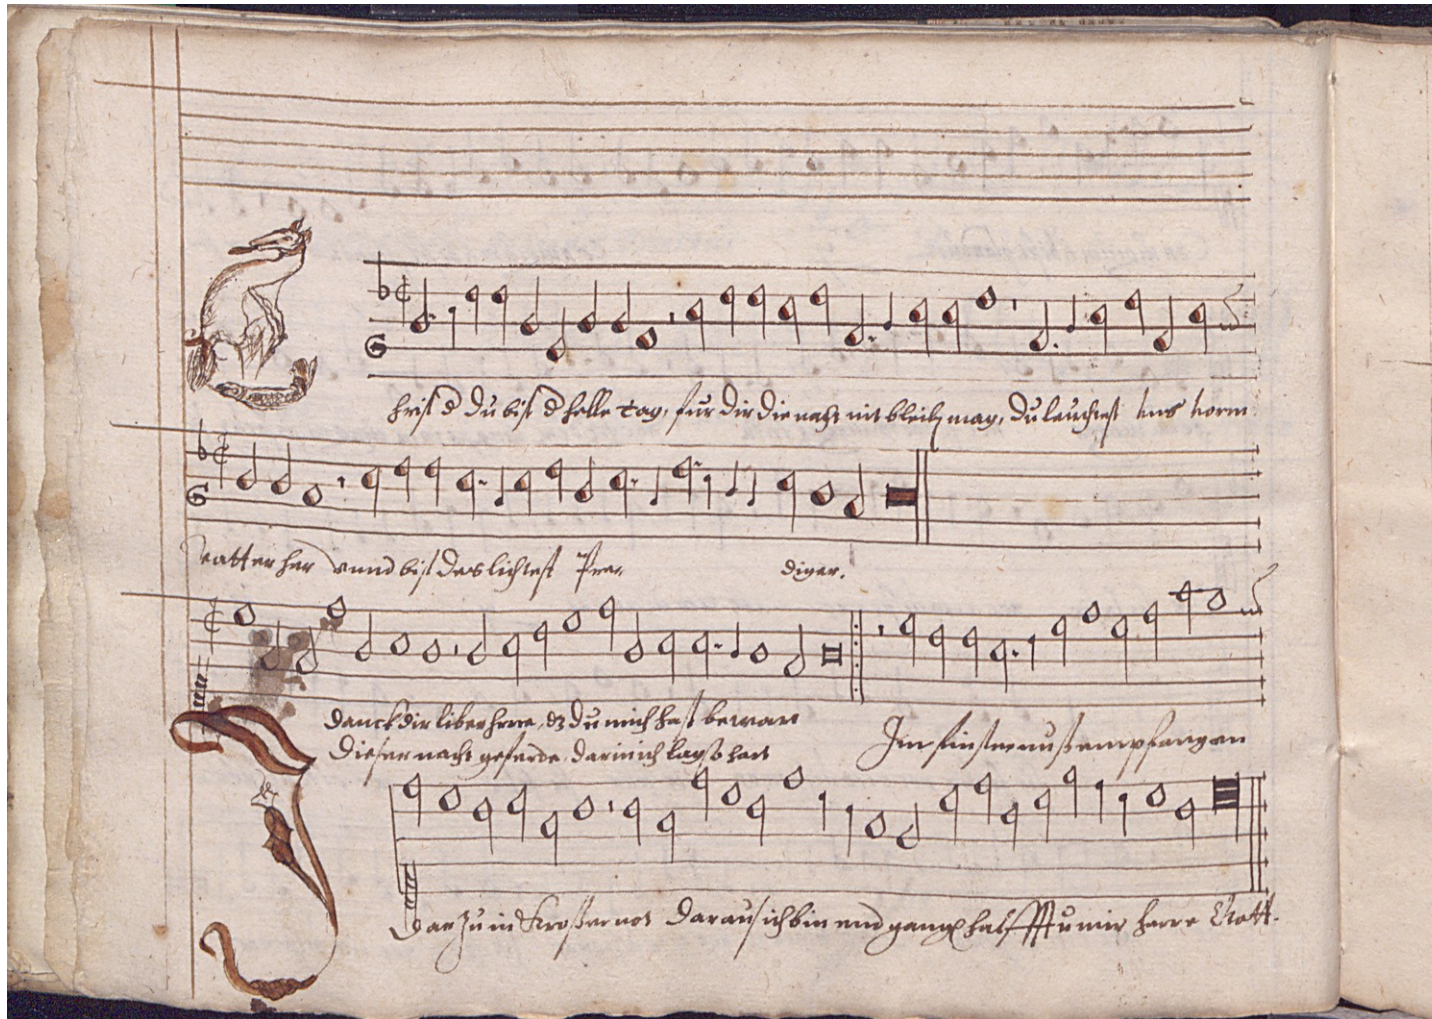 Christ d du bist d helle tag, fur dir die nacht nit bleib mag, Du leuchtest uns vorm
vatter her vnnd bist des lichtest Pre-
diger.
Danck dir liber herre, dz du mich hast bewart
Dieser nacht geferde, darin ich lag so hart
Im finsternuß empfangen
Darzu in Grosser not Daraus ich bin endgangen halffstu mir herre Gott.